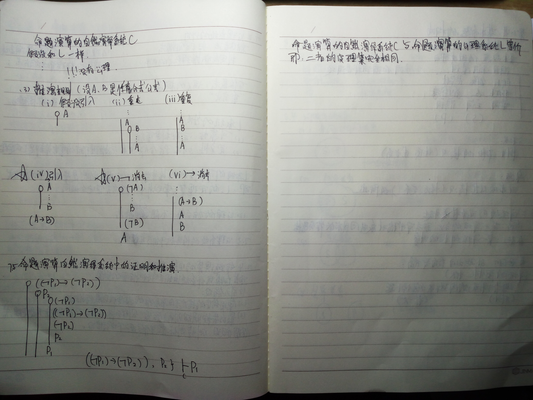 命题演算的自然演绎系统C
和L一样:
!!! 没有公理.
(2) 推演规则 (设A、B是任意公式)
(i) 假设引入 (ii) 重述 (iii) 重复
A
A
B
⋮
A
A
B
⋮
A
(iv) 引入 (v) 消去 (vi) → 消去
A
⋮
B
(A→B)
(¬A)
⋮
B
⋮
(¬B)
A
⋮
(A→B)
A
B
命题演算自然演绎系统中的证明和推演
((¬P₁)→(¬P₂))
P₂
(¬P₁)
((¬P₁)→(¬P₂))
(¬P₂)
P₂
P₁
((¬P₁)→(¬P₂)), P₂ ⊢ P₁
命题演算的自然演绎系统C与命题演算的公理系统L等价
即:二者的定理集完全相同.